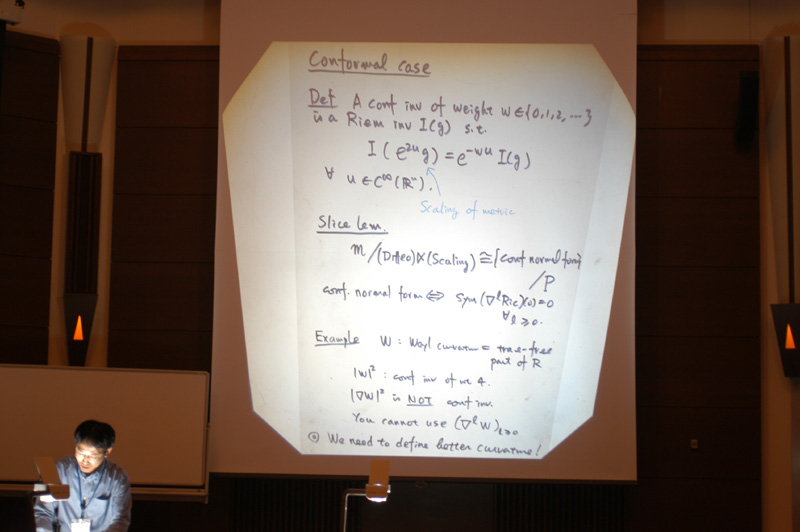 Conformal case
Def A conf inv of weight w ∈ {0, 1, 2, ...}
is a Riem inv I(g) s.t.
I(e²ᵘg) = e⁻ʷᵘ I(g)
∀ u ∈ C∞(ℝⁿ).
Scaling of metric
Slice lem.
m/(Diffeo)⋉(Scaling) ≅ {conf normal form}
/P
conf. normal form ⇔ Sym(∇ˡRic)(0) = 0
∀ l ≥ 0.
Example W : Weyl curvature = trace-free
part of R
|W|² : conf inv of wt 4.
|∇W|² is NOT conf inv.
You cannot use (∇ˡW)ₗ≥₀
◎ We need to define better curvature!